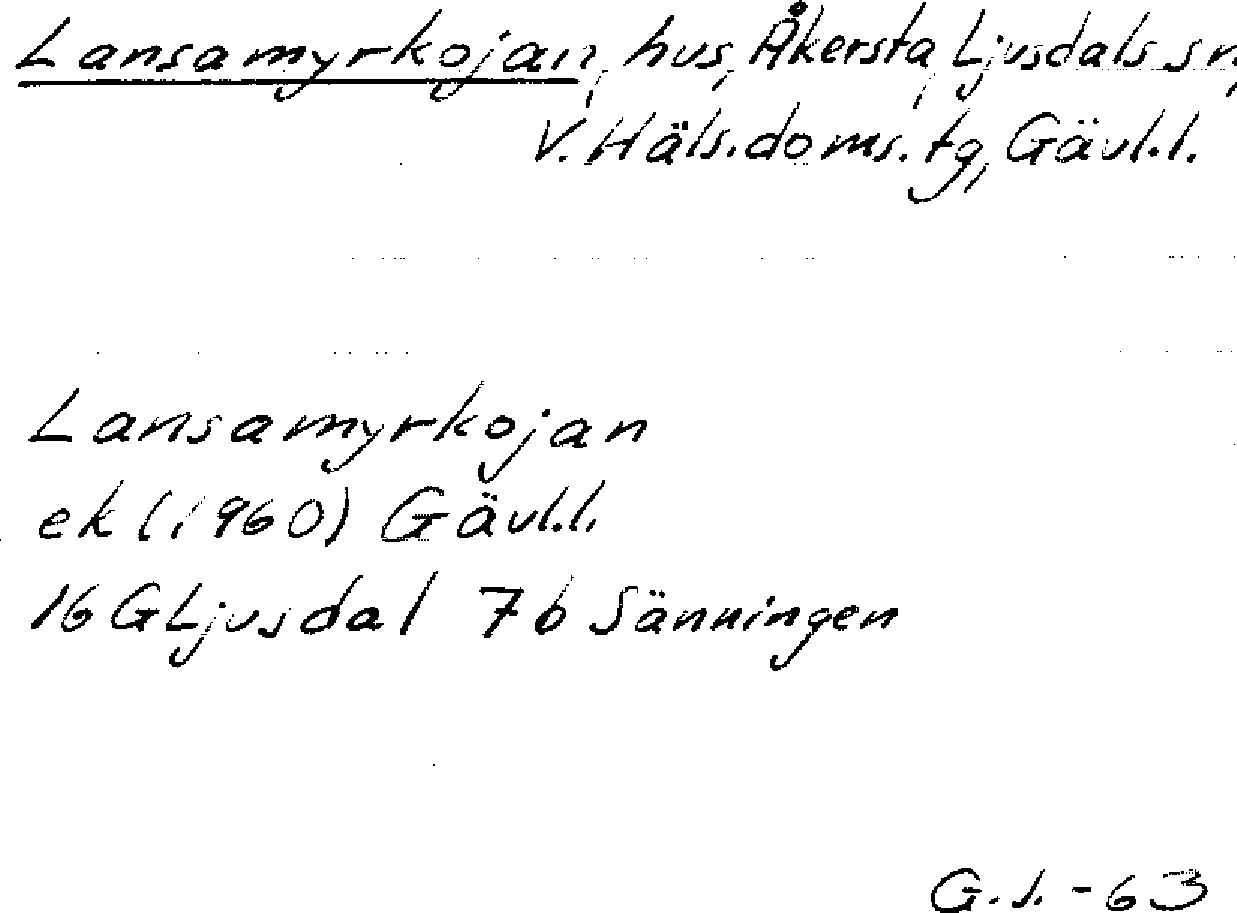 Lansamyrkojan, hus, Åkersta, Ljusdals sn,
V. Häls. doms. tg, Gävl.l.
Lansamyrkojan
ek (1960) Gävl.l.
16 G Ljusdal 7b Sänningen
G.J. -63